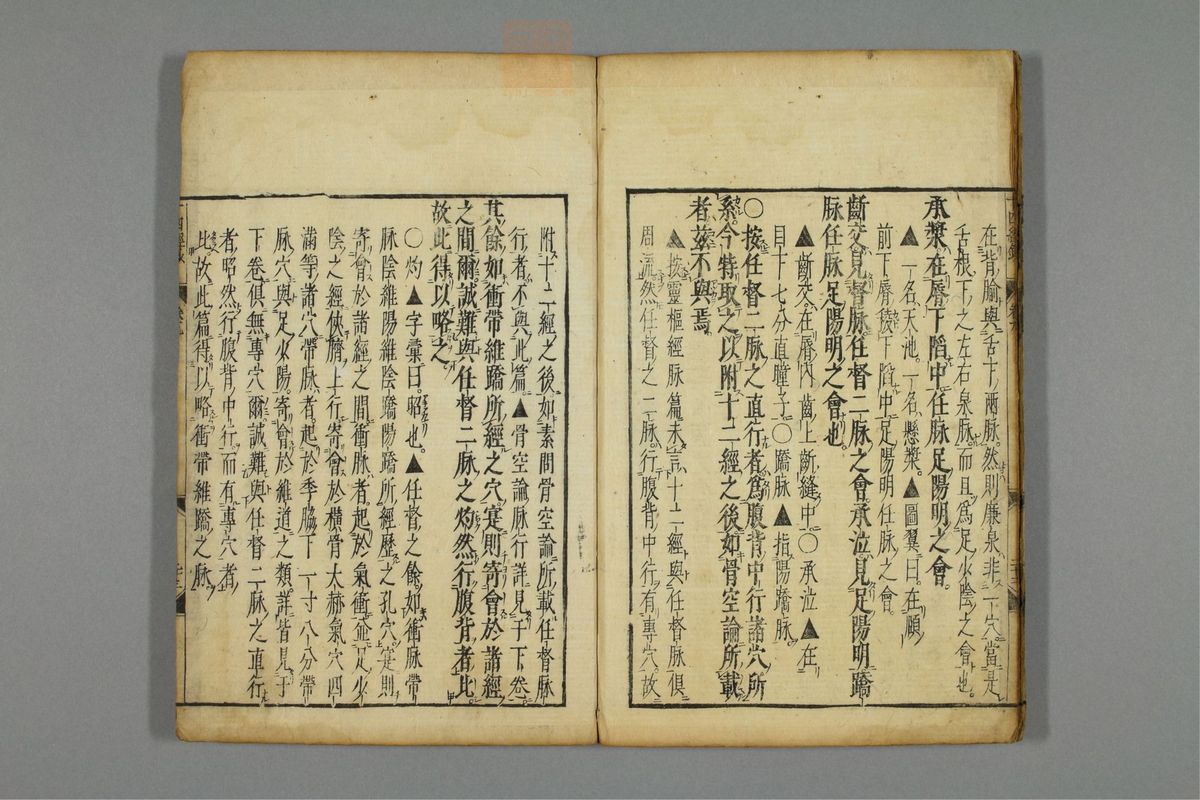 在背腧與舌下兩脉然則廉泉非一穴當是
舌根下之左右泉脉而且爲足少陰之會也
承漿在脣下陷中任脉足陽明之會
▲一名天池一名懸漿▲圖翼曰在頤
前下脣稜下陷中足陽明任脉之會
齗交見督脉任督二脉之會承泣見足陽明蹻
脉任脉足陽明之會也
▲齗交在脣内齒上齗縫中〇承泣▲在
目下七分直瞳子〇蹻脉▲指陽蹻脉
〇按任督二脉之直行者爲腹背中行諸穴所
系今特取之以附十二經之後如骨空論所載
者茲不與焉
▲按靈樞經脉篇未言十二經與任督脉俱
周流然任督之二脉行腹背中行有專穴故
附十二經之後如素問骨空論所載任督脉
行者不與此篇▲骨空論脉行詳見于下卷
其餘如衝帶維蹻所經之穴寔則寄會於諸經
之間爾誠難與任督二脉之灼然行腹背者比
故此得以略之
〇灼▲字彙曰昭也▲任督之餘如衝脉帶
脉陰維陽維陰蹻陽蹻所經歷之孔穴寔則
寄會於諸經之間衝脉者起於氣衝並足少
陰之經俠臍上行寄會於橫骨大赫氣穴四
滿等諸穴帶脉者起於季脇下一寸八分帶
脉穴與足少陽寄會於維道之類詳皆見于
下卷俱無專穴爾誠難與任督二脉之直行
者昭然行腹背中行而有專穴者
比故此篇得以略衝帶維蹻之脉